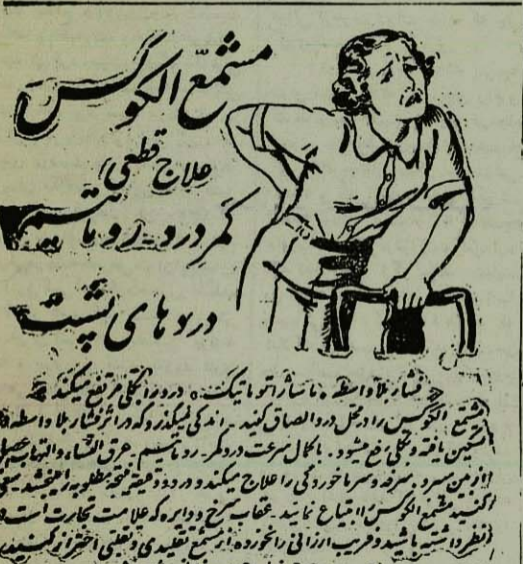 مشمع الکوکس
علاج قطعی
کمر درد - روماتیسم
دردهای پشت
فشار بلاواسطه «ماساژ اتوماتیک» درد را بکلی مرتفع میکند
مشمع الکوکس را در محل درد الصاق کنید - اندکی نمیگذرد که در اثر فشار بلاواسطه
تسکین یافته و بکلی رفع میشود. با کمال سرعت درد کمر - روماتیسم - عرق النساء، و التهاب
از بین میبرد. سرفه و سرماخوردگی را علاج میکند و در دو دقیقه نتیجه مطلوبه را میبخشد - سعی
کنید مشمع الکوکس را ابتیاع نمایید. عقاب سرخ و دایره که علامت تجارت است در
نظر داشته باشید و فریب ارزانی را نخورده از مشمع تقلیدی و تقلبی احتراز کنید